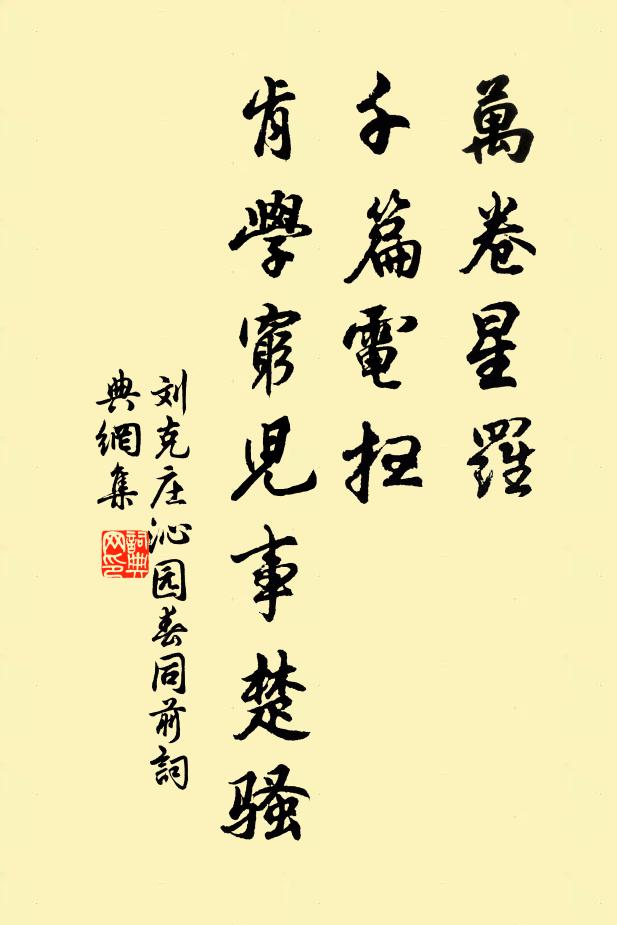 萬卷星羅
千篇電扫
肯學窮児事楚騷
刘克庄沁园春同前詞
典網集
詞典網印